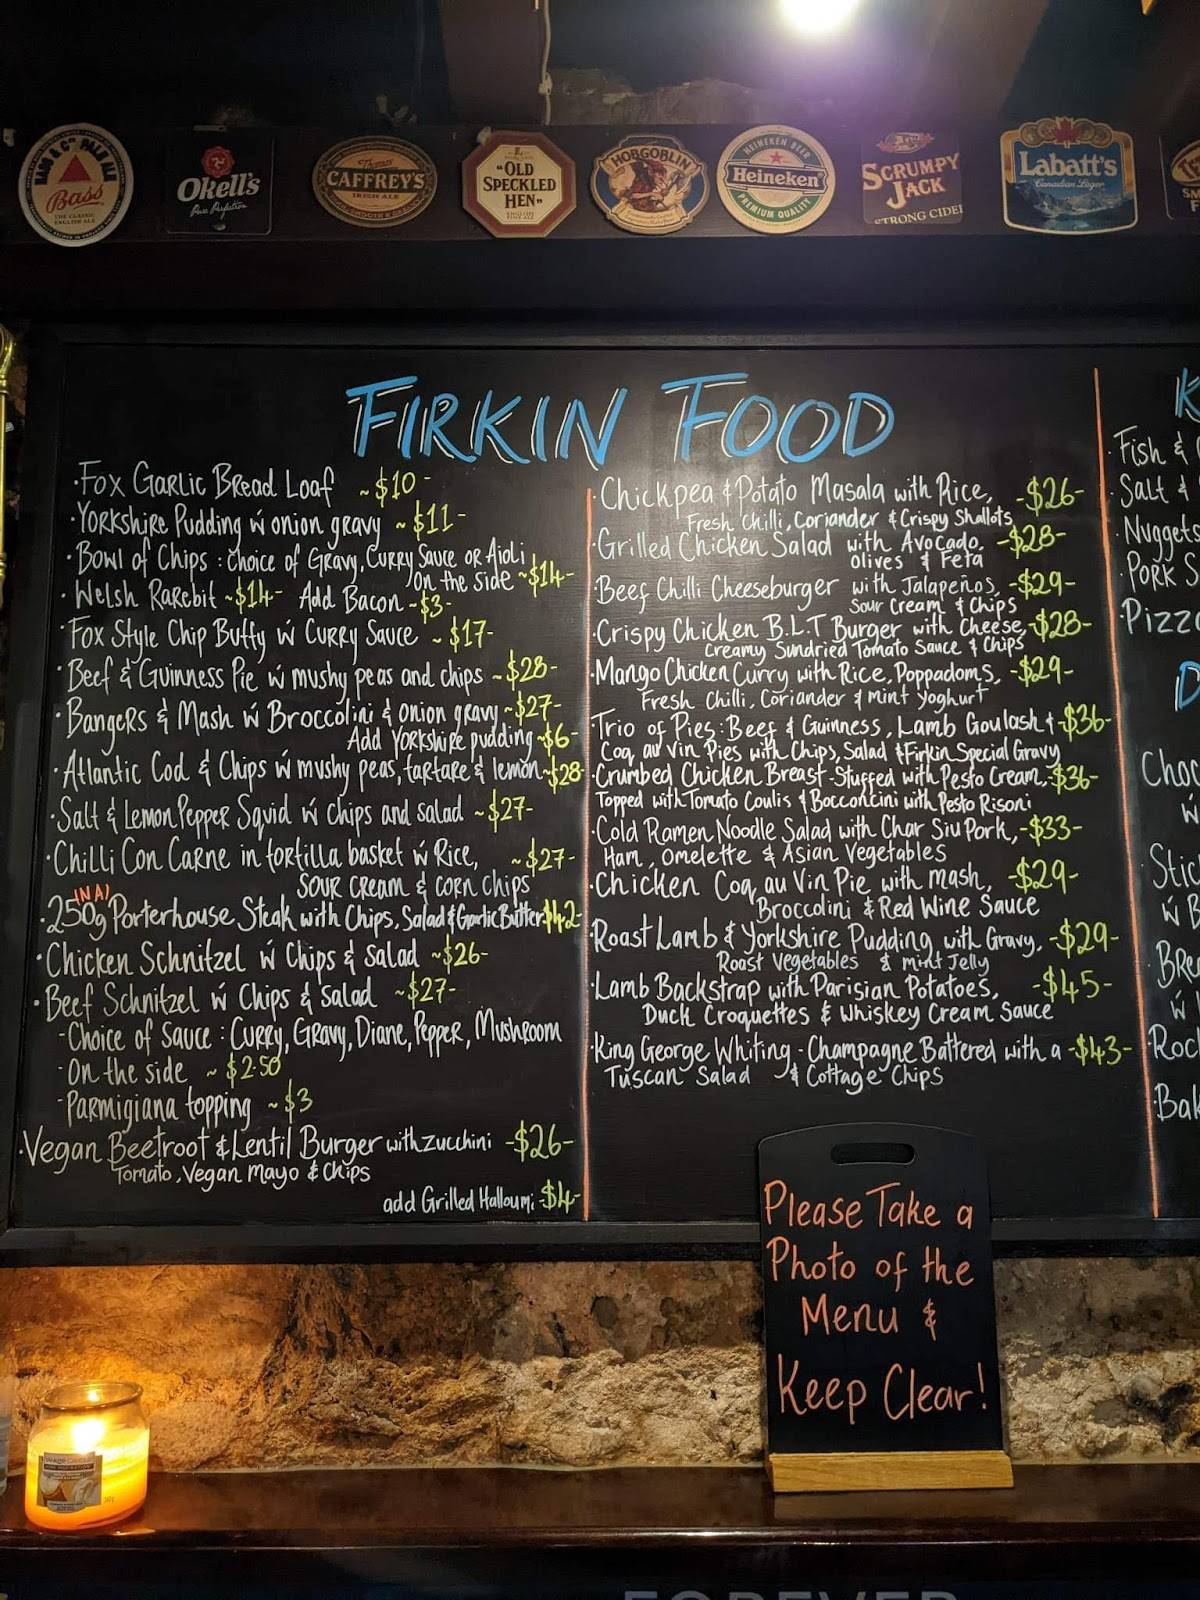 BASS & Co PALE ALE
Bass
THE CLASSIC
ENGLISH ALE
Okell's
Pure Perfection
Thomas
CAFFREY'S
IRISH ALE
"OLD
SPECKLED
HEN"
HOBGOBLIN
HEINEKEN BEER
Heineken
PREMIUM QUALITY
SCRUMPY
JACK
STRONG CIDER
Labatt's
Canadian Lager
FIRKIN FOOD
·Fox Garlic Bread Loaf ~$10-
·Yorkshire Pudding w onion gravy ~$11-
·Bowl of Chips : choice of Gravy, Curry Sauce or Aioli
On the side ~$14-
·Welsh Rarebit ~$14- Add Bacon ~$3-
·Fox Style Chip Buffy w Curry Sauce ~$17-
·Beef & Guinness Pie w mushy peas and chips ~$28-
·Bangers & Mash w Broccolini & onion gravy ~$27-
Add Yorkshire pudding ~$6-
·Atlantic Cod & Chips w mushy peas, tartare & lemon ~$28-
·Salt & Lemon Pepper Squid w Chips and salad ~$27-
·Chilli Con Carne in tortilla basket w Rice, ~$27-
Sour cream & corn chips
IN A)
·250g Porterhouse Steak with Chips, Salad & Garlic Butter $42-
·Chicken Schnitzel w Chips & Salad ~$26-
·Beef Schnitzel w Chips & Salad ~$27-
-Choice of Sauce : Curry, Gravy, Diane, Pepper, Mushroom
-On the side ~$2.50
-Parmigiana topping ~$3
·Vegan Beetroot & Lentil Burger with zucchini -$26-
Tomato, Vegan Mayo & Chips
add Grilled Halloumi -$4-
·Chickpea & Potato Masala with Rice, -$26-
Fresh Chilli, Coriander & Crispy Shallots
·Grilled Chicken Salad with Avocado, -$28-
olives & Feta
·Beef Chilli Cheeseburger with Jalapeños, -$29-
Sour Cream & Chips
·Crispy Chicken B.L.T Burger with Cheese, -$28-
Creamy Sundried Tomato Sauce & Chips
·Mango Chicken Curry with Rice, Poppadoms, -$29-
Fresh Chilli, Coriander & Mint Yoghurt
·Trio of Pies: Beef & Guinness, Lamb Goulash & -$36-
Coq au Vin Pies with Chips, Salad & Firkin Special Gravy
·Crumbed Chicken Breast - Stuffed with Pesto Cream, -$36-
Topped with Tomato Coulis & Bocconcini with Pesto Risoni
·Cold Ramen Noodle Salad with Char Siu Pork, -$33-
Ham, Omelette & Asian Vegetables
·Chicken Coq au Vin Pie with Mash, -$29-
Broccolini & Red Wine Sauce
·Roast Lamb & Yorkshire Pudding with Gravy, -$29-
Roast Vegetables & Mint Jelly
·Lamb Backstrap with Parisian Potatoes, -$45-
Duck Croquettes & Whiskey Cream Sauce
·King George Whiting - Champagne Battered with a -$43-
Tuscan Salad & Cottage Chips
K
·Fish &
·Salt &
·Nuggets
·Pork S
·Pizza
D
·Choc
w
·Stic
w B
·Bre
w
·Roc
·Bak
Please Take a
Photo of the
Menu &
Keep Clear!
YANKEE CANDLE
FOREVER